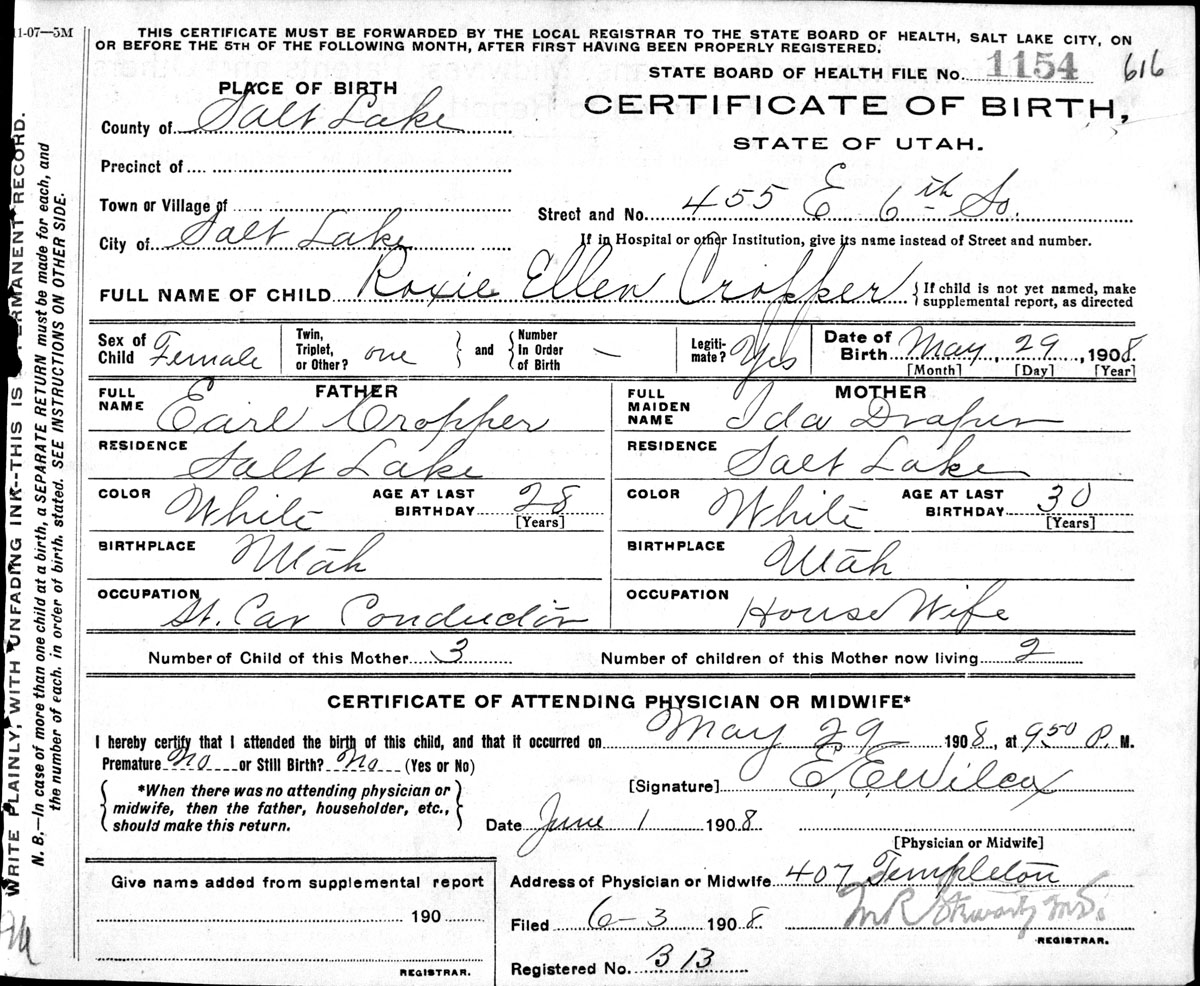 11-07—5M
THIS CERTIFICATE MUST BE FORWARDED BY THE LOCAL REGISTRAR TO THE STATE BOARD OF HEALTH, SALT LAKE CITY, ON
OR BEFORE THE 5TH OF THE FOLLOWING MONTH, AFTER FIRST HAVING BEEN PROPERLY REGISTERED.
STATE BOARD OF HEALTH FILE No. 1154 616
PLACE OF BIRTH
CERTIFICATE OF BIRTH,
STATE OF UTAH.
County of Salt Lake
Precinct of
Town or Village of
Street and No. 455 E 6th So.
City of Salt Lake
If in Hospital or other Institution, give its name instead of Street and number.
FULL NAME OF CHILD Roxie Ellen Cropper { If child is not yet named, make
supplemental report, as directed
Sex of Child Female
Twin, Triplet, or Other? one } and { Number In Order of Birth —
Legiti-mate? Yes
Date of Birth May, 29, 1908.
[Month] [Day] [Year]
FATHER
FULL NAME Earl Cropper
RESIDENCE Salt Lake
COLOR White AGE AT LAST BIRTHDAY 28 [Years]
BIRTHPLACE Utah
OCCUPATION St. Car Conductor
MOTHER
FULL MAIDEN NAME Ida Draper
RESIDENCE Salt Lake
COLOR White AGE AT LAST BIRTHDAY 30 [Years]
BIRTHPLACE Utah
OCCUPATION House Wife
Number of Child of this Mother 3 Number of children of this Mother now living 2
CERTIFICATE OF ATTENDING PHYSICIAN OR MIDWIFE*
I hereby certify that I attended the birth of this child, and that it occurred on May 29 1908, at 9 50 P. M.
Premature No or Still Birth? No (Yes or No)
[Signature] E. E. Wilcox
{ *When there was no attending physician or
midwife, then the father, householder, etc.,
should make this return. }
Date June 1 1908
[Physician or Midwife]
Give name added from supplemental report
190
REGISTRAR.
Address of Physician or Midwife 407 Templeton
Filed 6-3 1908
M R Stewart M.D.
REGISTRAR.
Registered No. B 13
WRITE PLAINLY, WITH UNFADING INK--THIS IS PERMANENT RECORD.
N. B.—In case of more than one child at a birth, a SEPARATE RETURN must be made for each, and
the number of each, in order of birth, stated. SEE INSTRUCTIONS ON OTHER SIDE.